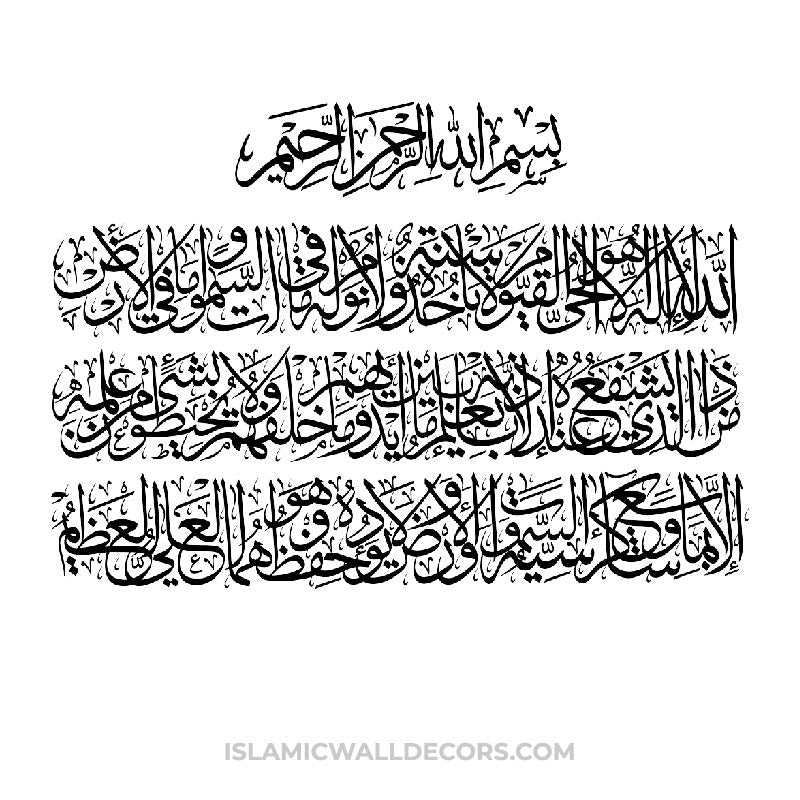 بِسْمِ اللهِ الرَّحْمٰنِ الرَّحِيْمِ
اللهُ لَا إِلٰهَ إِلَّا هُوَ الْحَيُّ الْقَيُّومُ لَا تَأْخُذُهُ سِنَةٌ وَلَا نَوْمٌ لَهُ مَا فِي السَّمٰوَاتِ وَمَا فِي الْأَرْضِ
مَنْ ذَا الَّذِي يَشْفَعُ عِنْدَهُ إِلَّا بِإِذْنِهِ يَعْلَمُ مَا بَيْنَ أَيْدِيهِمْ وَمَا خَلْفَهُمْ وَلَا يُحِيطُونَ بِشَيْءٍ مِنْ عِلْمِهِ
إِلَّا بِمَا شَاءَ وَسِعَ كُرْسِيُّهُ السَّمٰوَاتِ وَالْأَرْضَ وَلَا يَئُودُهُ حِفْظُهُمَا وَهُوَ الْعَلِيُّ الْعَظِيمُ
ISLAMICWALLDECORS.COM